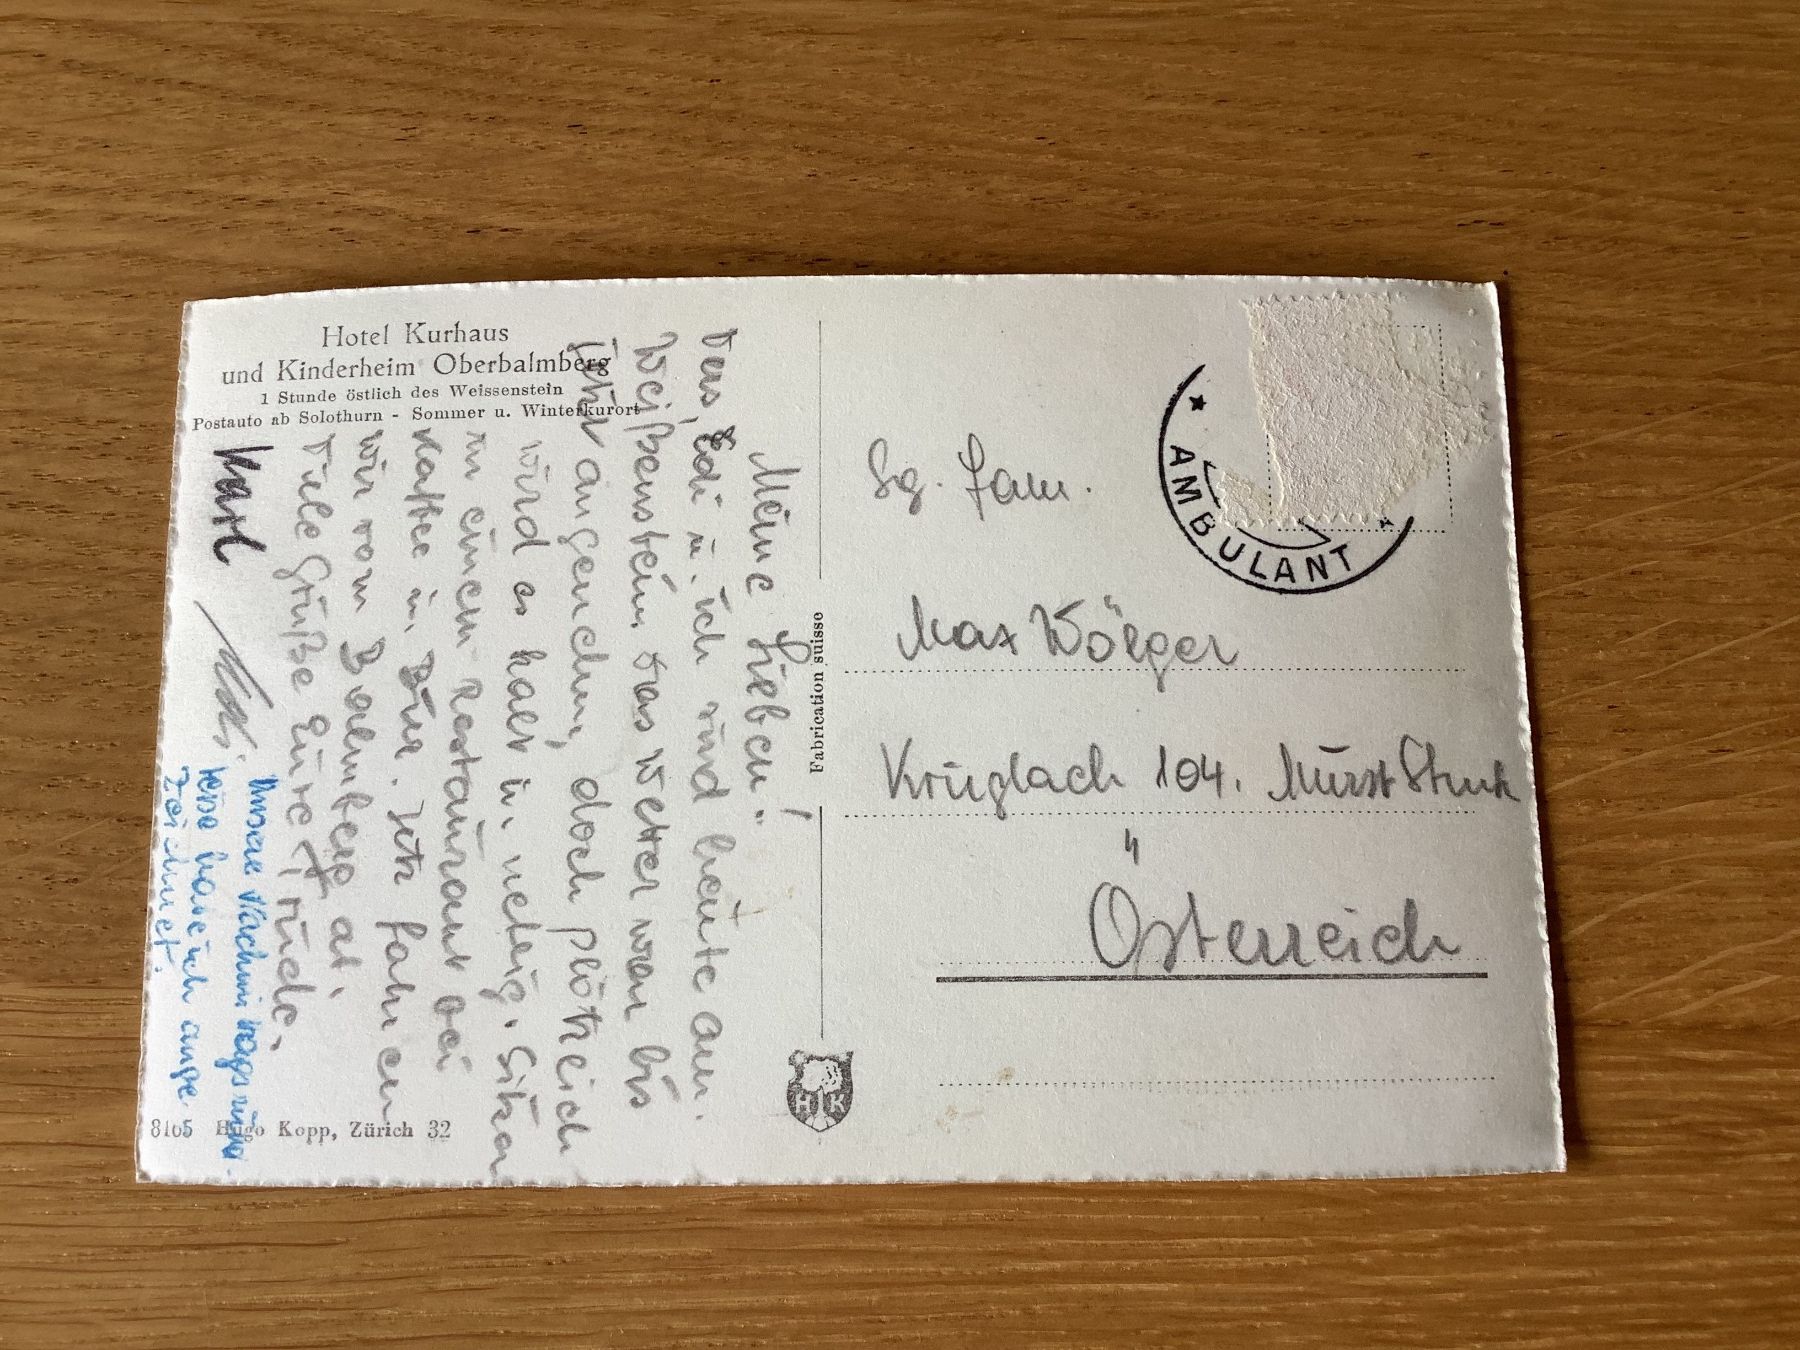 Hotel Kurhaus
und Kinderheim Oberbalmberg
1 Stunde östlich des Weissenstein
Postauto ab Solothurn - Sommer u. Winterkurort
Meine Lieben!
Edi u. ich sind heute am
Weißenstein. Das Wetter war bis
jetzt angenehm, doch plötzlich
wird es kalt u. neblig. Sitzen
in einem Restaurant bei
Kaffee u. Bier. Jetzt fahren
wir vom Balmberg ab.
Viele Grüße Eure Trude.
Karl
Edi.
Unsere
reise habe ich ange
zeichnet.
8105 Hugo Kopp, Zürich 32
Fabrication suisse
HK
AMBULANT
Sg. Fam.
Max Wölger
Krieglach 104. Mürzt Stmk
"
Österreich